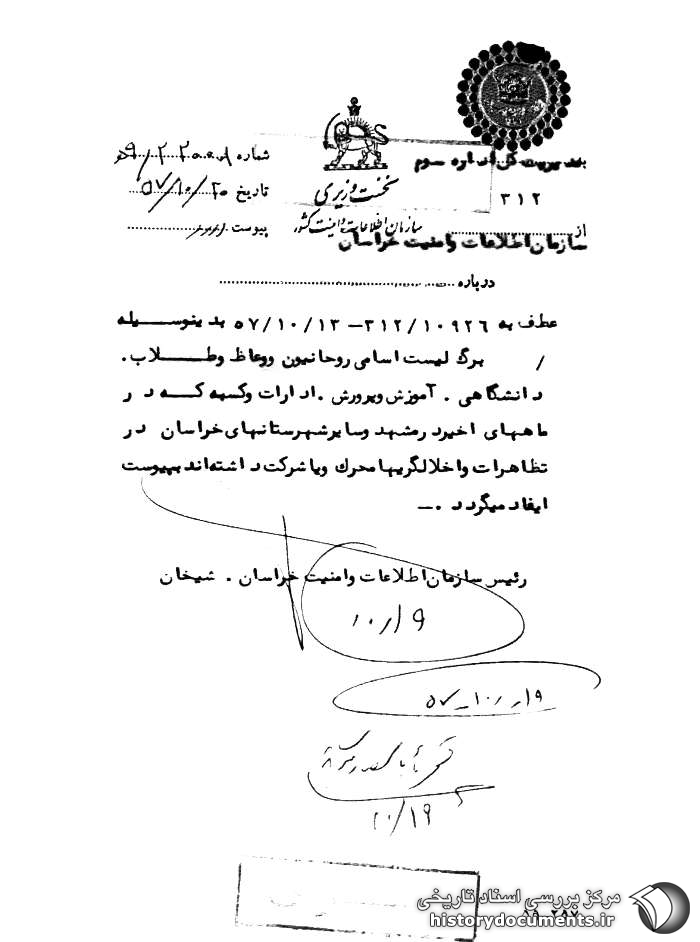 شماره
بمدیریت کل اداره سوم
تاریخ ۵۷/۱۰/۲۰
نخست وزیری
۳۱۲
پیوست
سازمان اطلاعات و امنیت کشور
از
سازمان اطلاعات وامنیت خراسان
درباره
عطف به ۳۱۲/۱۰۹۲۶ – ۵۷/۱۰/۱۳ بدینوسیله
/ برگ لیست اسامی روحانیون ووعاظ وطلاب .
دانشگاهی . آموزش وپرورش . ادارات وکسبه که در
ماههای اخیردرمشهد وسایرشهرستانهای خراسان در
تظاهرات واخلالگریهامحرک ویاشرکت داشته‌اندبپیوست
ایفادمیگردد . ــ
رئیس سازمان اطلاعات وامنیت خراسان . شیخان
۱۰/۱۹
۵۷-۱۰-۱۹
۱۰/۱۹
مرکز بررسی اسناد تاریخی
historydocuments.ir